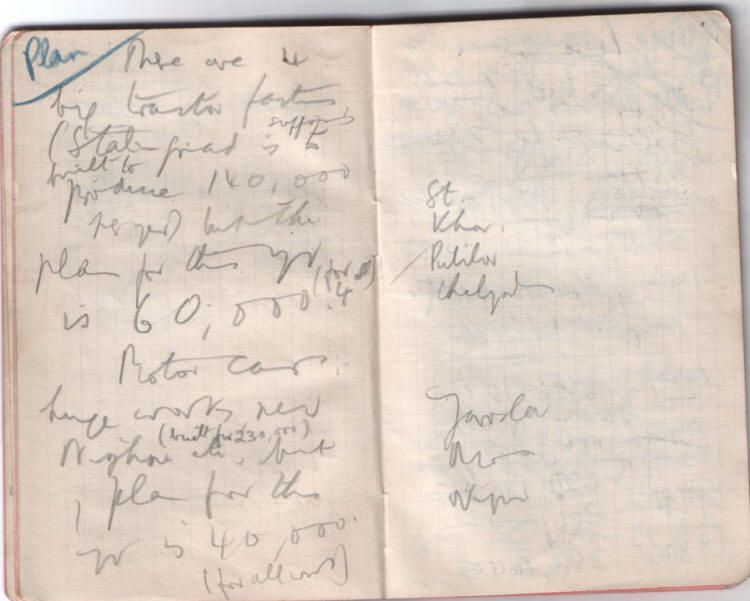 Plan There are 4
big tractor facties
supposed
(Stalingrad is to
built to
produce 140,000
per yr) but the
plan for this yr
(for all
is 60,000. 4)
Motor cars.
huge works near
(built for 230,000)
Nizhni etc, but
plan for this
yr is 40,000.
(for all works)
St.
Khar.
Putilov
Chelyab
Yarosla
Mos
Nizhni